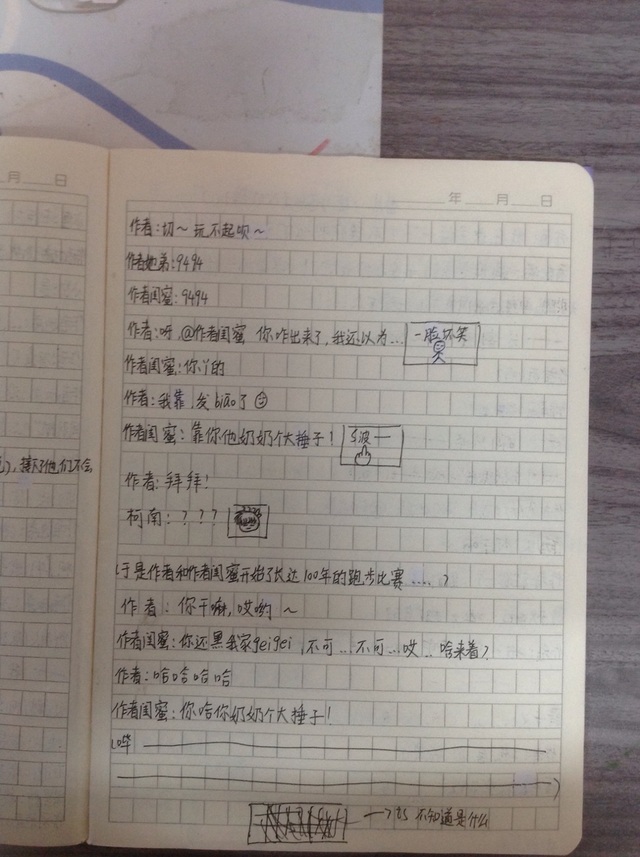 月 日
年 月 日
作者:切~玩不起呗~
作者她弟:9494
作者闺蜜:9494
作者:呀,@作者闺蜜 你咋出来了,我还以为... 一脸坏笑
作者闺蜜:你丫的
作者:我靠,发biāo了
作者闺蜜:靠你他奶奶个大捶子!
作者:拜拜!
柯南:???
(于是作者和作者闺蜜开始了长达100年的跑步比赛....)
作者:你干嘛,哎哟~
作者闺蜜:你还黑我家geigei,不可...不可...哎..啥来着?
作者:哈哈哈哈
作者闺蜜:你哈你奶奶个大捶子!
(哔
)
不知道是什么
他们不会